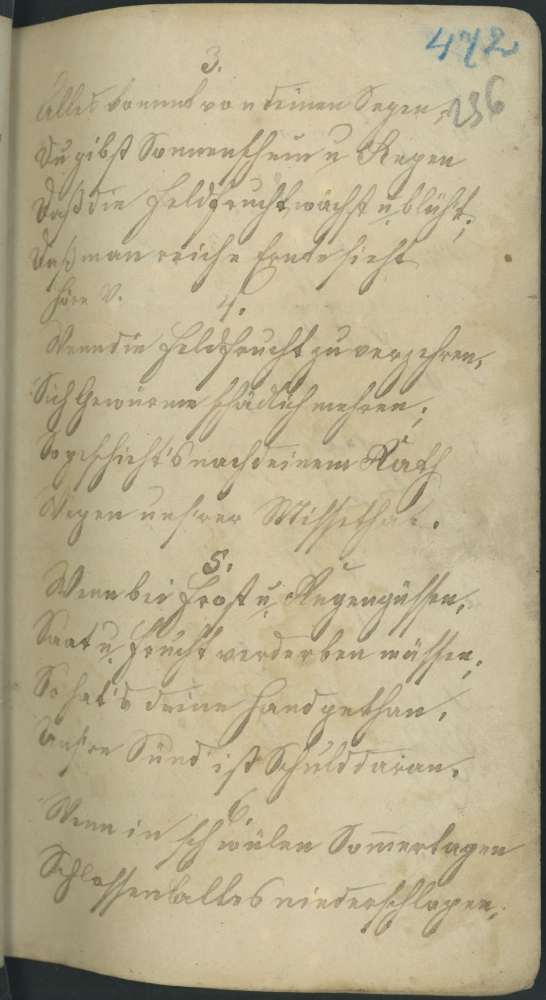 472
236
3.
Alles kommt von deinem Segen,
Du gibst Sonnenschein u Regen
Daß die Feldfrucht wächst u blüht,
Daß man reiche Ernte sieht
Höre V.
4.
Wenn die Feldfrucht zu verzehren,
Sich Gewürme schädlich mehren,
So geschicht's nach deinem Rath
Wegen uns'rer Missethat.
5.
Wenn bei Frost u Regengüssen,
Saat u Frucht verderben müssen,
So hat's deine Hand gethan,
Uns're Sünd' ist Schuld daran.
6
Wenn in schwülen Sommertagen
Schlossen alles niederschlagen,